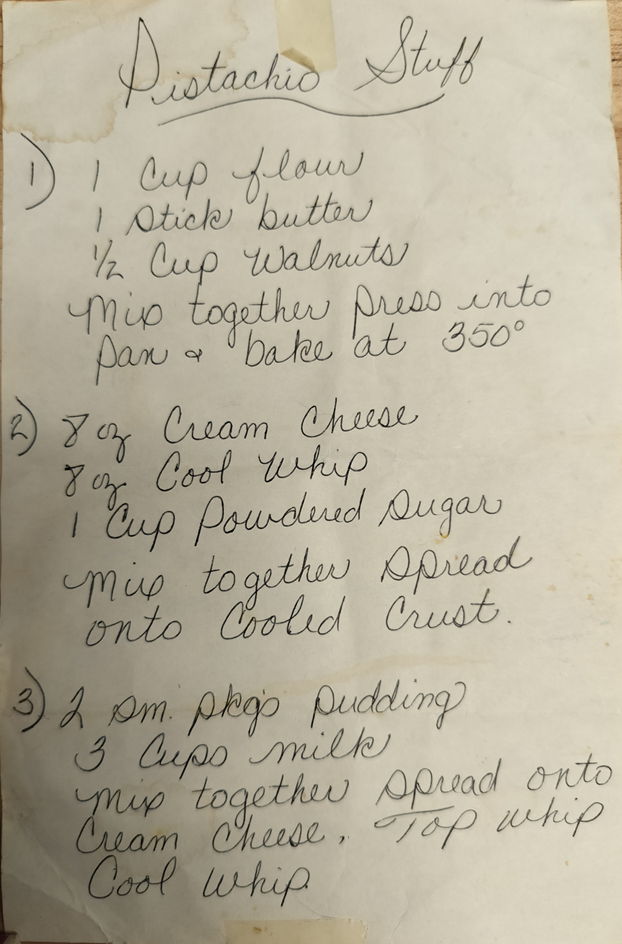 Pistachio Stuff
1) 1 Cup flour
1 stick butter
1/2 Cup Walnuts
Mix together press into
pan & bake at 350°
2) 8 oz Cream Cheese
8 oz Cool Whip
1 Cup Powdered Sugar
Mix together Spread
onto Cooled Crust.
3) 2 sm. pkgs pudding
3 Cups milk
Mix together Spread onto
Cream Cheese. Top whip
Cool Whip